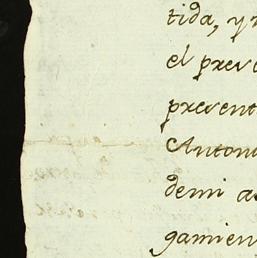 tida, y
el prev
present
Anton
demi a
gamien